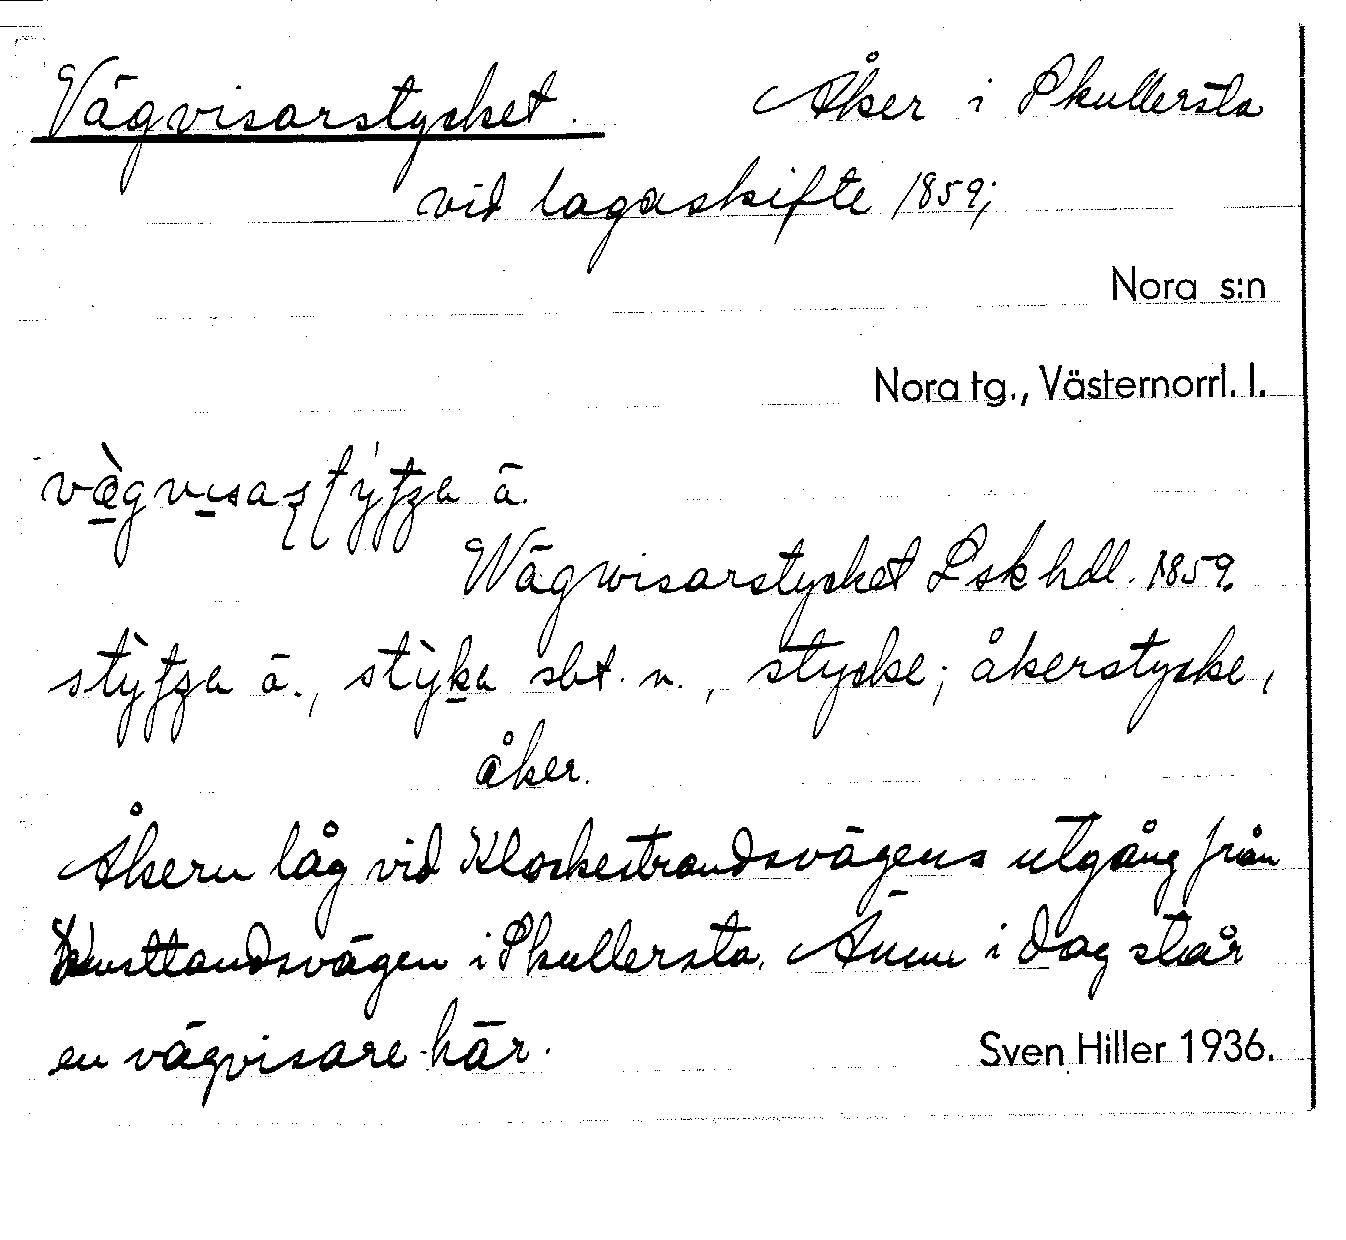 Vägvisarstycket. Åker i Skullersta
vid lagaskifte 1859;
Nora s:n
Nora tg., Västernorrl. l.
ä.
Wägwisarstycket Lskhdl. 1859.
ä., sbt. n., stycke; åkerstycke,
åker.
Åkern låg vid Klockestrandsvägens utgång från
Kustlandsvägen i Skullersta. Ännu i dag står
en vägvisare här.
Sven Hiller 1936.